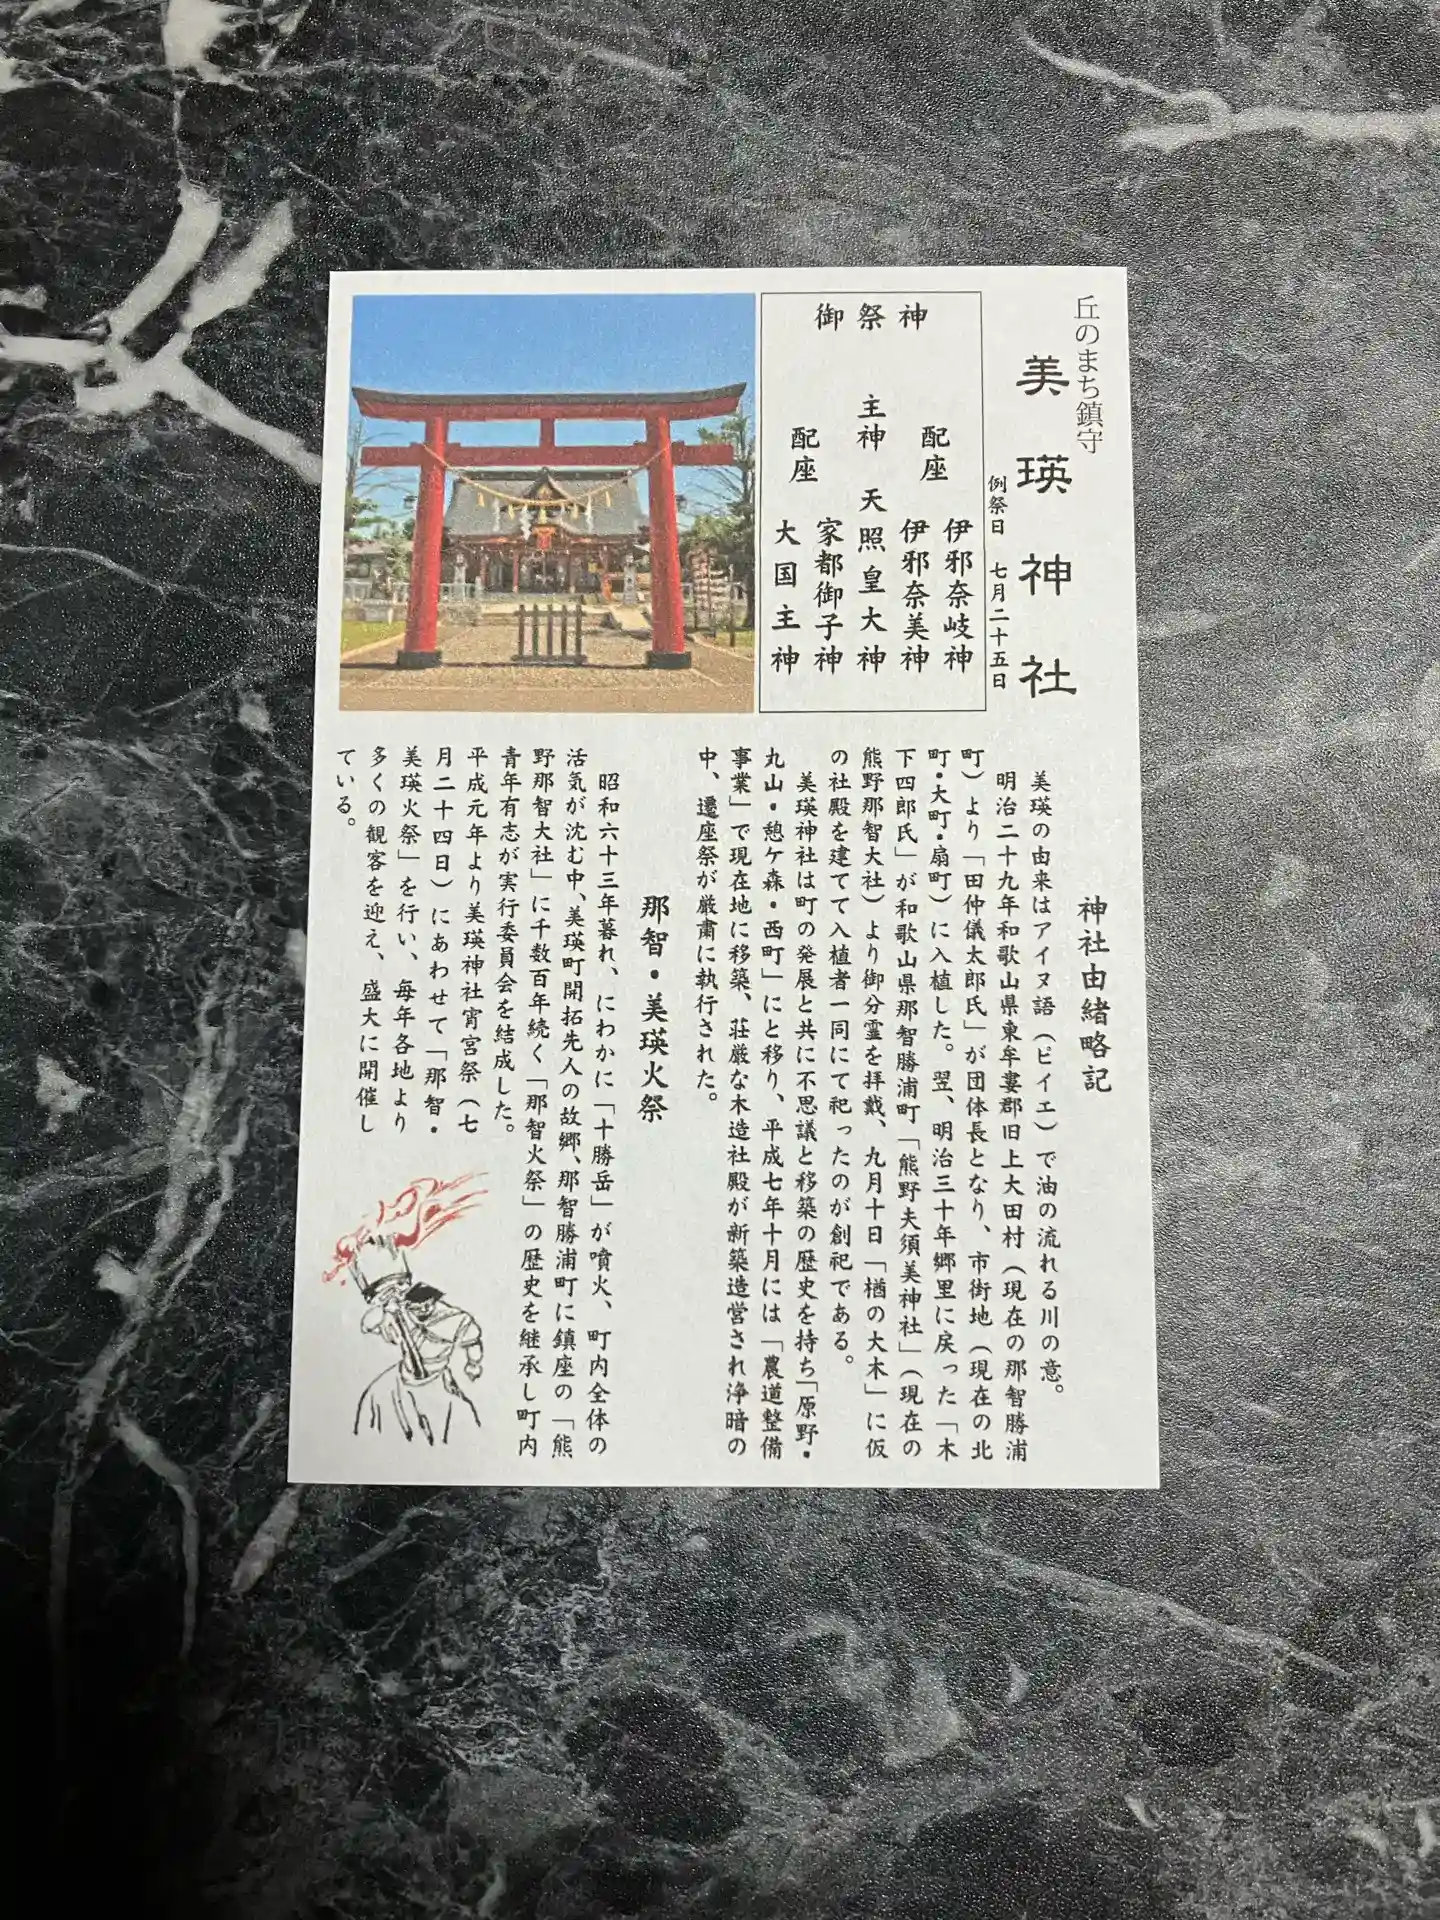 丘のまち鎮守
美瑛神社
例祭日 七月二十五日
御祭神
配座 伊邪奈岐神
伊邪奈美神
主神 天照皇大神
配座 家都御子神
大国主神
神社由緒略記
美瑛の由来はアイヌ語（ビイエ）で油の流れる川の意。
明治二十九年和歌山県東牟婁郡旧上大田村（現在の那智勝浦
町）より「田仲儀太郎氏」が団体長となり、市街地（現在の北
町・大町・扇町）に入植した。翌、明治三十年郷里に戻った「木
下四郎氏」が和歌山県那智勝浦町「熊野夫須美神社」（現在の
熊野那智大社）より御分霊を拝戴、九月十日「楢の大木」に仮
の社殿を建てて入植者一同にて祀ったのが創祀である。
美瑛神社は町の発展と共に不思議と移築の歴史を持ち「原野・
丸山・憩ケ森・西町」にと移り、平成七年十月には「農道整備
事業」で現在地に移築、荘厳な木造社殿が新築造営され浄暗の
中、遷座祭が厳粛に執行された。
那智・美瑛火祭
昭和六十三年暮れ、にわかに「十勝岳」が噴火、町内全体の
活気が沈む中、美瑛町開拓先人の故郷、那智勝浦町に鎮座の「熊
野那智大社」に千数百年続く「那智火祭」の歴史を継承し町内
青年有志が実行委員会を結成した。
平成元年より美瑛神社宵宮祭（七
月二十四日）にあわせて「那智・
美瑛火祭」を行い、毎年各地より
多くの観客を迎え、盛大に開催し
ている。